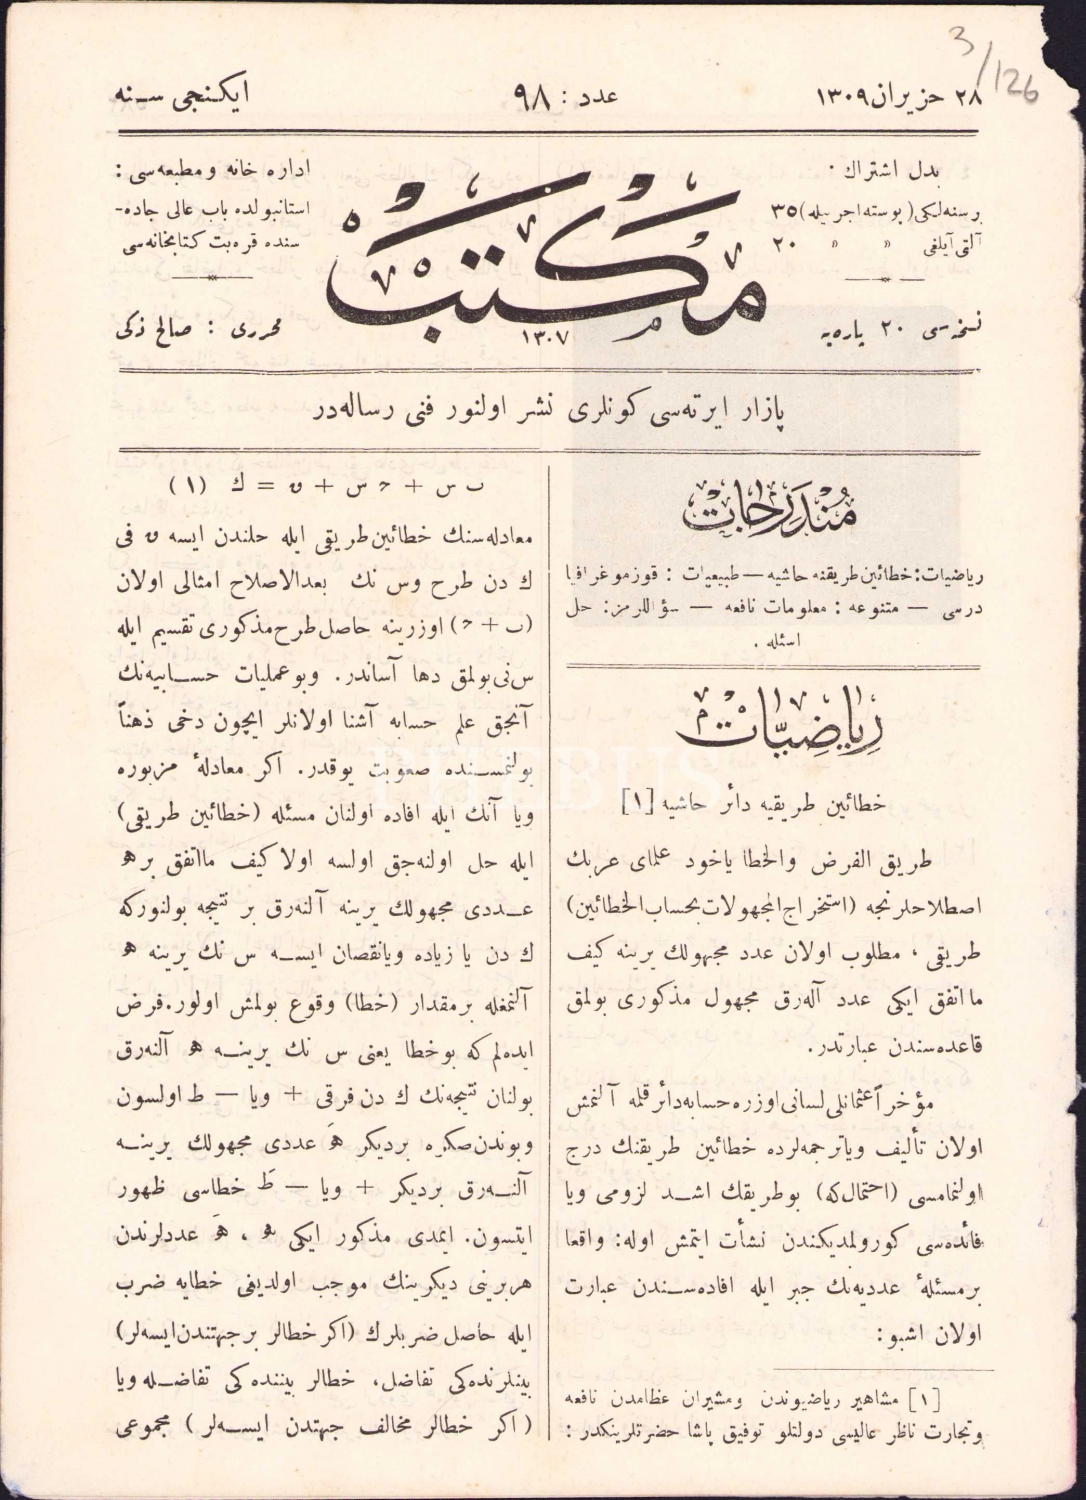 3/126
٢٨ حزيران ١٣٠٩
عدد : ٩٨
ايكنجى سنه
بدل اشتراك ·
برسنه‌لكى (پوسته اجرتيله) ٣٥
آلتى آيلغى » » ٢٠
نسخه‌سى ٢٠ پاره‌يه
مكتب
١٣٠٧
اداره خانه ومطبعه‌سى :
استانبولده باب عالى جاده-
سنده قره‌بت كتابخانه‌سى
محررى : صالح ذكى
پازار ايرته‌سى كونلرى نشر اولنور فنى رساله‌در
مُنْدَرِجَات
رياضيات: خطائين طريقنه حاشيه — طبيعيات : قوزموغرافيا
درسى — متنوعه : معلومات نافعه — سؤاللرمز: حل
اسئله .
رِيَاضِيَّات
خطائين طريقيه دائر حاشيه [١]
طريق الفرض والخطا ياخود علماى عربك
اصطلاحلرنجه (استخراج المجهولات بحساب الخطائين)
طريقى ، مطلوب اولان عدد مجهولك يرينه كيف
مااتفق ايكى عدد آله‌رق مجهول مذكورى بولمق
قاعده‌سندن عبارتدر.
مؤخراً عثمانلى لسانى اوزره حسابه دائر قلمه آلنمش
اولان تأليف وياترجمه‌لرده خطائين طريقنك درج
اولنمامسى (احتمال كه) بوطريقك اشد لزومى ويا
فائده‌سى كورولمديكندن نشأت ايتمش اوله: واقعا
برمسئلهٔ عدديه‌نك جبر ايله افاده‌سندن عبارت
اولان اشبو :
[١] مشاهير رياضيوندن ومشيران عظامدن نافعه
وتجارت ناظر عاليسى دولتلو توفيق پاشا حضرتلرينكدر :
ب س + ح س + ں = ك (١)
معادله‌سنك خطائين طريقى ايله حلندن ايسه ں فى
ك دن طرح وس نك بعدالاصلاح امثالى اولان
(ب + ح) اوزرينه حاصل طرح مذكورى تقسيم ايله
س نى بولمق دها آساندر. وبوعمليات حسابيه‌نك
آنجق علم حسابه آشنا اولانلر ايچون دخى ذهناً
بولنمسنده صعوبت يوقدر. اكر معادلهٔ مزبوره
ويا آنك ايله افاده اولنان مسئله (خطائين طريقى)
ايله حل اولنه‌جق اولسه اولا كيف مااتفق بر ه
عددى مجهولك يرينه آلنه‌رق بر نتيجه بولنوركه
ك دن يا زياده ويانقصان ايسه س نك يرينه ه
آلنمغله برمقدار (خطا) وقوع بولمش اولور. فرض
ايده‌لم كه بوخطا يعنى س نك يرينه ه آلنه‌رق
بولنان نتيجه‌نك ك دن فرقى + ويا — ط اولسون
وبوندن صكره برديكر هَ عددى مجهولك يرينه
آلنه‌رق برديكر + ويا — طَ خطاسى ظهور
ايتسون. ايمدى مذكور ايكى ه ، هَ عددلرندن
هربرينى ديكرينك موجب اولديغى خطايه ضرب
ايله حاصل ضربلرك (اكر خطالر برجهتدن ايسه‌لر)
بينلرنده‌كى تفاضل، خطالر بيننده‌كى تفاضله ويا
( اكر خطالر مخالف جهتدن ايسه‌لر ) مجموعى